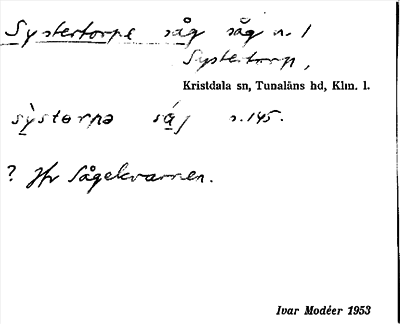 Systertorpe såg såg n. 1
Systertorp,
Kristdala sn, Tunaläns hd, Klm. l.
sỳstərpə såj s. 145.
? Jfr Sågekvarnen.
Ivar Modéer 1953